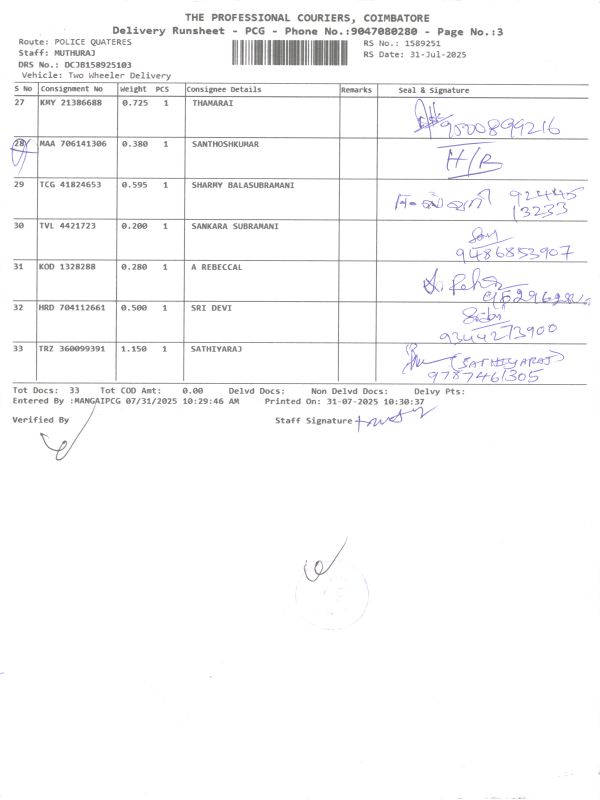 THE PROFESSIONAL COURIERS, COIMBATORE
Delivery Runsheet - PCG - Phone No.:9047080280 - Page No.:3
Route: POLICE QUATERES RS No.: 1589251
Staff: MUTHURAJ RS Date: 31-Jul-2025
DRS No.: DCJB158925103
Vehicle: Two Wheeler Delivery
S No Consignment No Weight PCS Consignee Details Remarks Seal & Signature
27 KMY 21386688 0.725 1 THAMARAI
9500899216
28 MAA 706141306 0.380 1 SANTHOSHKUMAR H/R
29 TCG 41824653 0.595 1 SHARMY BALASUBRAMANI 92445
13233
30 TVL 4421723 0.200 1 SANKARA SUBRAMANI
9486853907
31 KOD 1328288 0.280 1 A REBECCAL
32 HRD 704112661 0.500 1 SRI DEVI
9344273900
33 TRZ 360099391 1.150 1 SATHIYARAJ (SATHIYARAJ)
9787461305
Tot Docs: 33 Tot COD Amt: 0.00 Delvd Docs: Non Delvd Docs: Delvy Pts:
Entered By :MANGAIPCG 07/31/2025 10:29:46 AM Printed On: 31-07-2025 10:30:37
Verified By Staff Signature